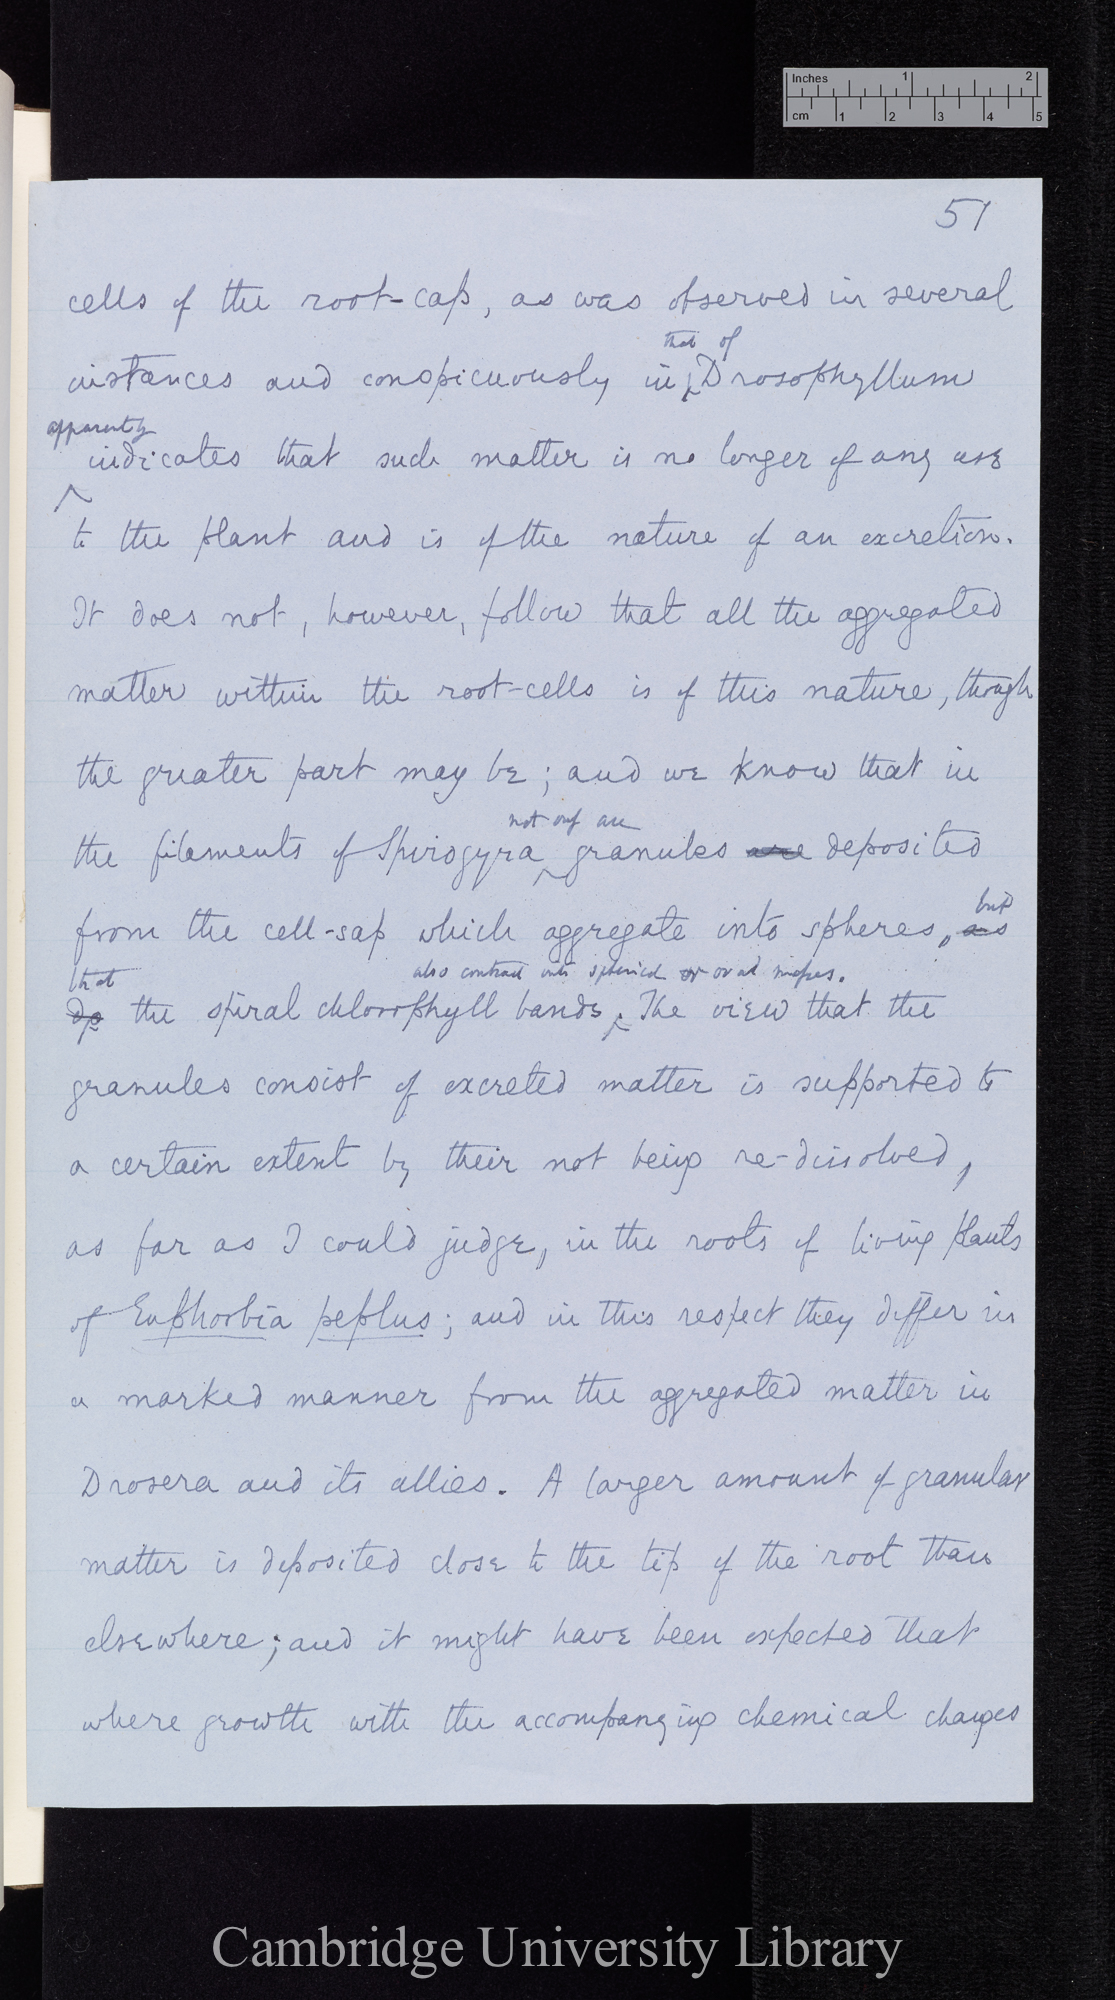 Inches 1 2
cm 1 2 3 4 5
51
cells of the root-cap, as was observed in several
that of
instances and conspicuously in Drosophyllum
apparently
indicates that such matter is no longer of any use
to the plant and is of the nature of an excretion.
It does not, however, follow that all the aggregated
matter within the root-cells is of this nature, though
the greater part may be; and we know that in
not only are
the filaments of Spirogyra granules are deposited
but
from the cell-sap which aggregate into spheres, as
that also contract into spherical or oval masses.
do the spiral chlorophyll bands. The view that the
granules consist of excreted matter is supported to
a certain extent by their not being re-dissolved,
as far as I could judge, in the roots of living plants
of Euphorbia peplus; and in this respect they differ in
a marked manner from the aggregated matter in
Drosera and its allies. A larger amount of granular
matter is deposited close to the tip of the root than
elsewhere; and it might have been expected that
where growth with the accompanying chemical changes
Cambridge University Library